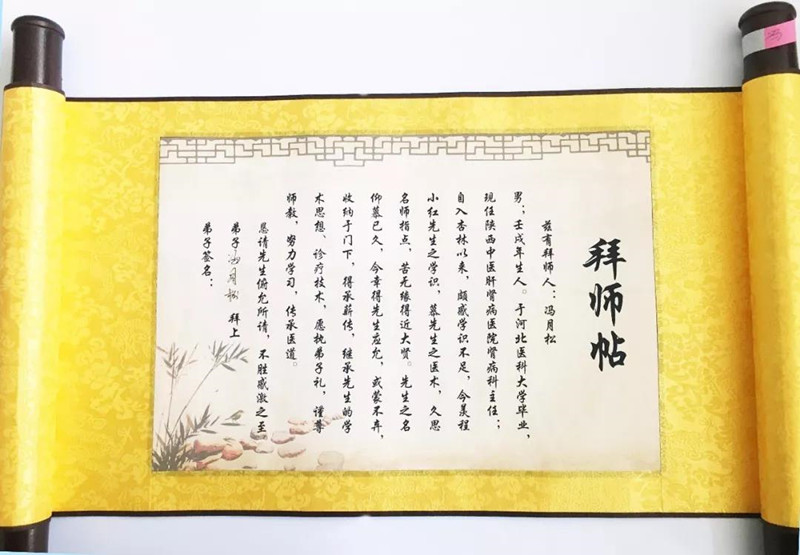 拜师帖
兹有拜师人：冯月松
男；壬戌年生人。于河北医科大学毕业，
现任陕西中医肝肾病医院肾病科主任；
自入杏林以来，颇感学识不足，今羡程
小红先生之学识，慕先生之医术，久思
名师指点，苦无缘得近大贤。先生之名
仰慕已久，今幸得先生应允，或蒙不弃，
收纳于门下，得承薪传，继承先生的学
术思想、诊疗技术，愿执弟子礼，谨尊
师教，努力学习，传承医道。
恳请先生俯允所请，不胜感激之至
弟子冯月松 拜上
弟子签名：